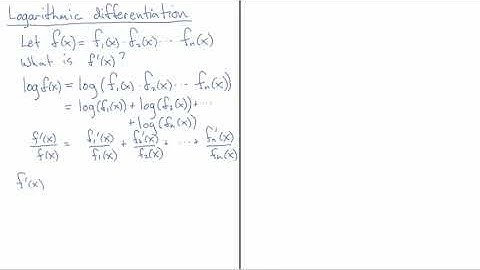 Logarithmic differentiation
Let f(x) = f₁(x) · f₂(x) ··· fₙ(x)
What is f'(x)?
log f(x) = log(f₁(x) · f₂(x) ··· fₙ(x))
= log(f₁(x)) + log(f₂(x)) + ···
+ log(fₙ(x))
f'(x)/f(x) = f₁'(x)/f₁(x) + f₂'(x)/f₂(x) + ··· + fₙ'(x)/fₙ(x)
f'(x)